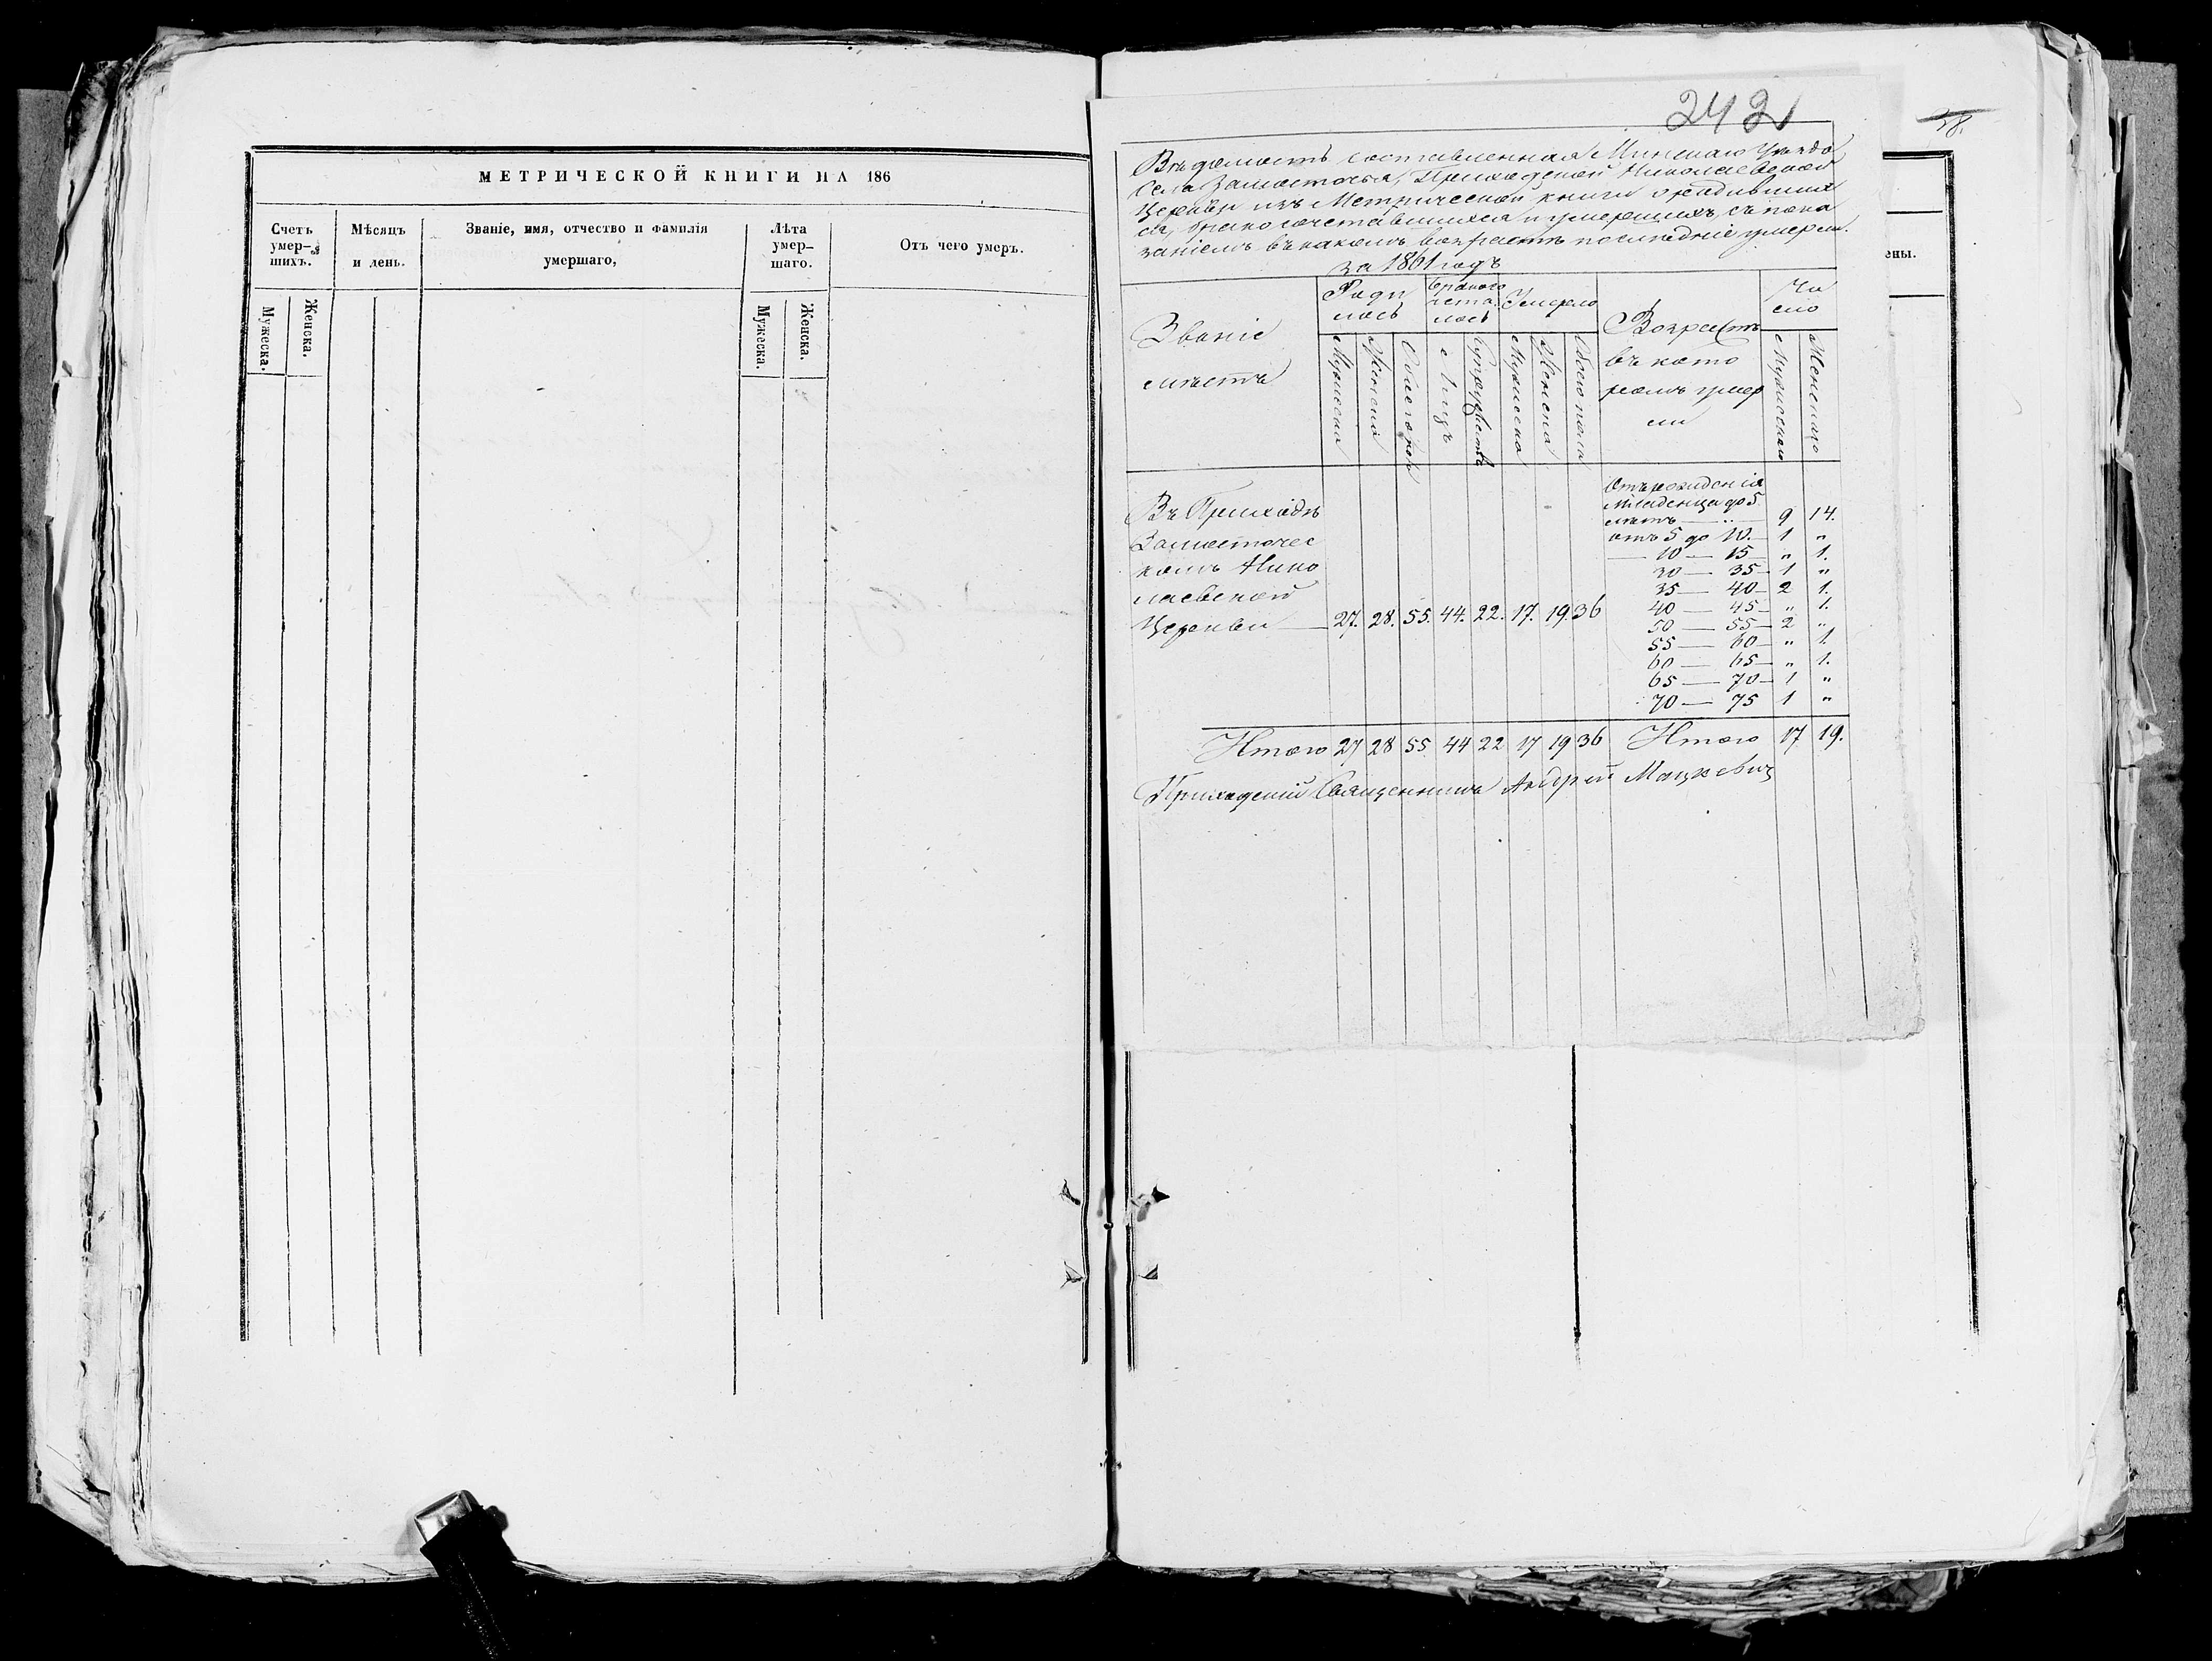 МЕТРИЧЕСКОЙ КНИГИ НА 186
Счетъ умер-шихъ.
Мѣсяцъ и день.
Званіе, имя, отчество и фамилія умершаго,
Лѣта умер-шаго.
Отъ чего умеръ.
Мужеска.
Женска.
Мужеска.
Женска.
242
38.
ены.
Вѣдомость составленная Минскаго Уѣзда
Села Замосточья, Приходской Николаевской
Церкви изъ Метрической книги о родивших
ся, бракосочетавшихся и умершихъ, съ пока
заніемъ въ какомъ возрастѣ послѣдніе умерли.
за 1861 годъ
Званіе
мѣстъ
Роди
лось
Бракосо
чета
лось
Умерло
Возрастъ
въ кото
ромъ умер
ли
Чи
сло
Мужеска
Женска
Обоего пола
Лицъ
Супружествъ
Мужеска
Женска
Обоего пола
Мужескаго
Женскаго
Въ Приходѣ
Замосточес
комъ Нико
лаевской
Церкви — 27. 28. 55. 44. 22. 17. 19. 36
Отъ рожденія
младенца до 5
лѣтъ — „ 9 14.
отъ 5 до 10. — 1 „
— 10 — 15 — „ 1.
30 — 35 — 1 „
35 — 40 — 2 1.
40 — 45 — „ 1.
50 — 55 — 2 „
55 — 60 — „ 1.
60 — 65 — „ 1.
65 — 70 — 1 „
70 — 75 1 „
Итого 27 28 55 44 22 17 19 36 Итого 17 19.
Приходскій Священникъ Андрей Мацкевич